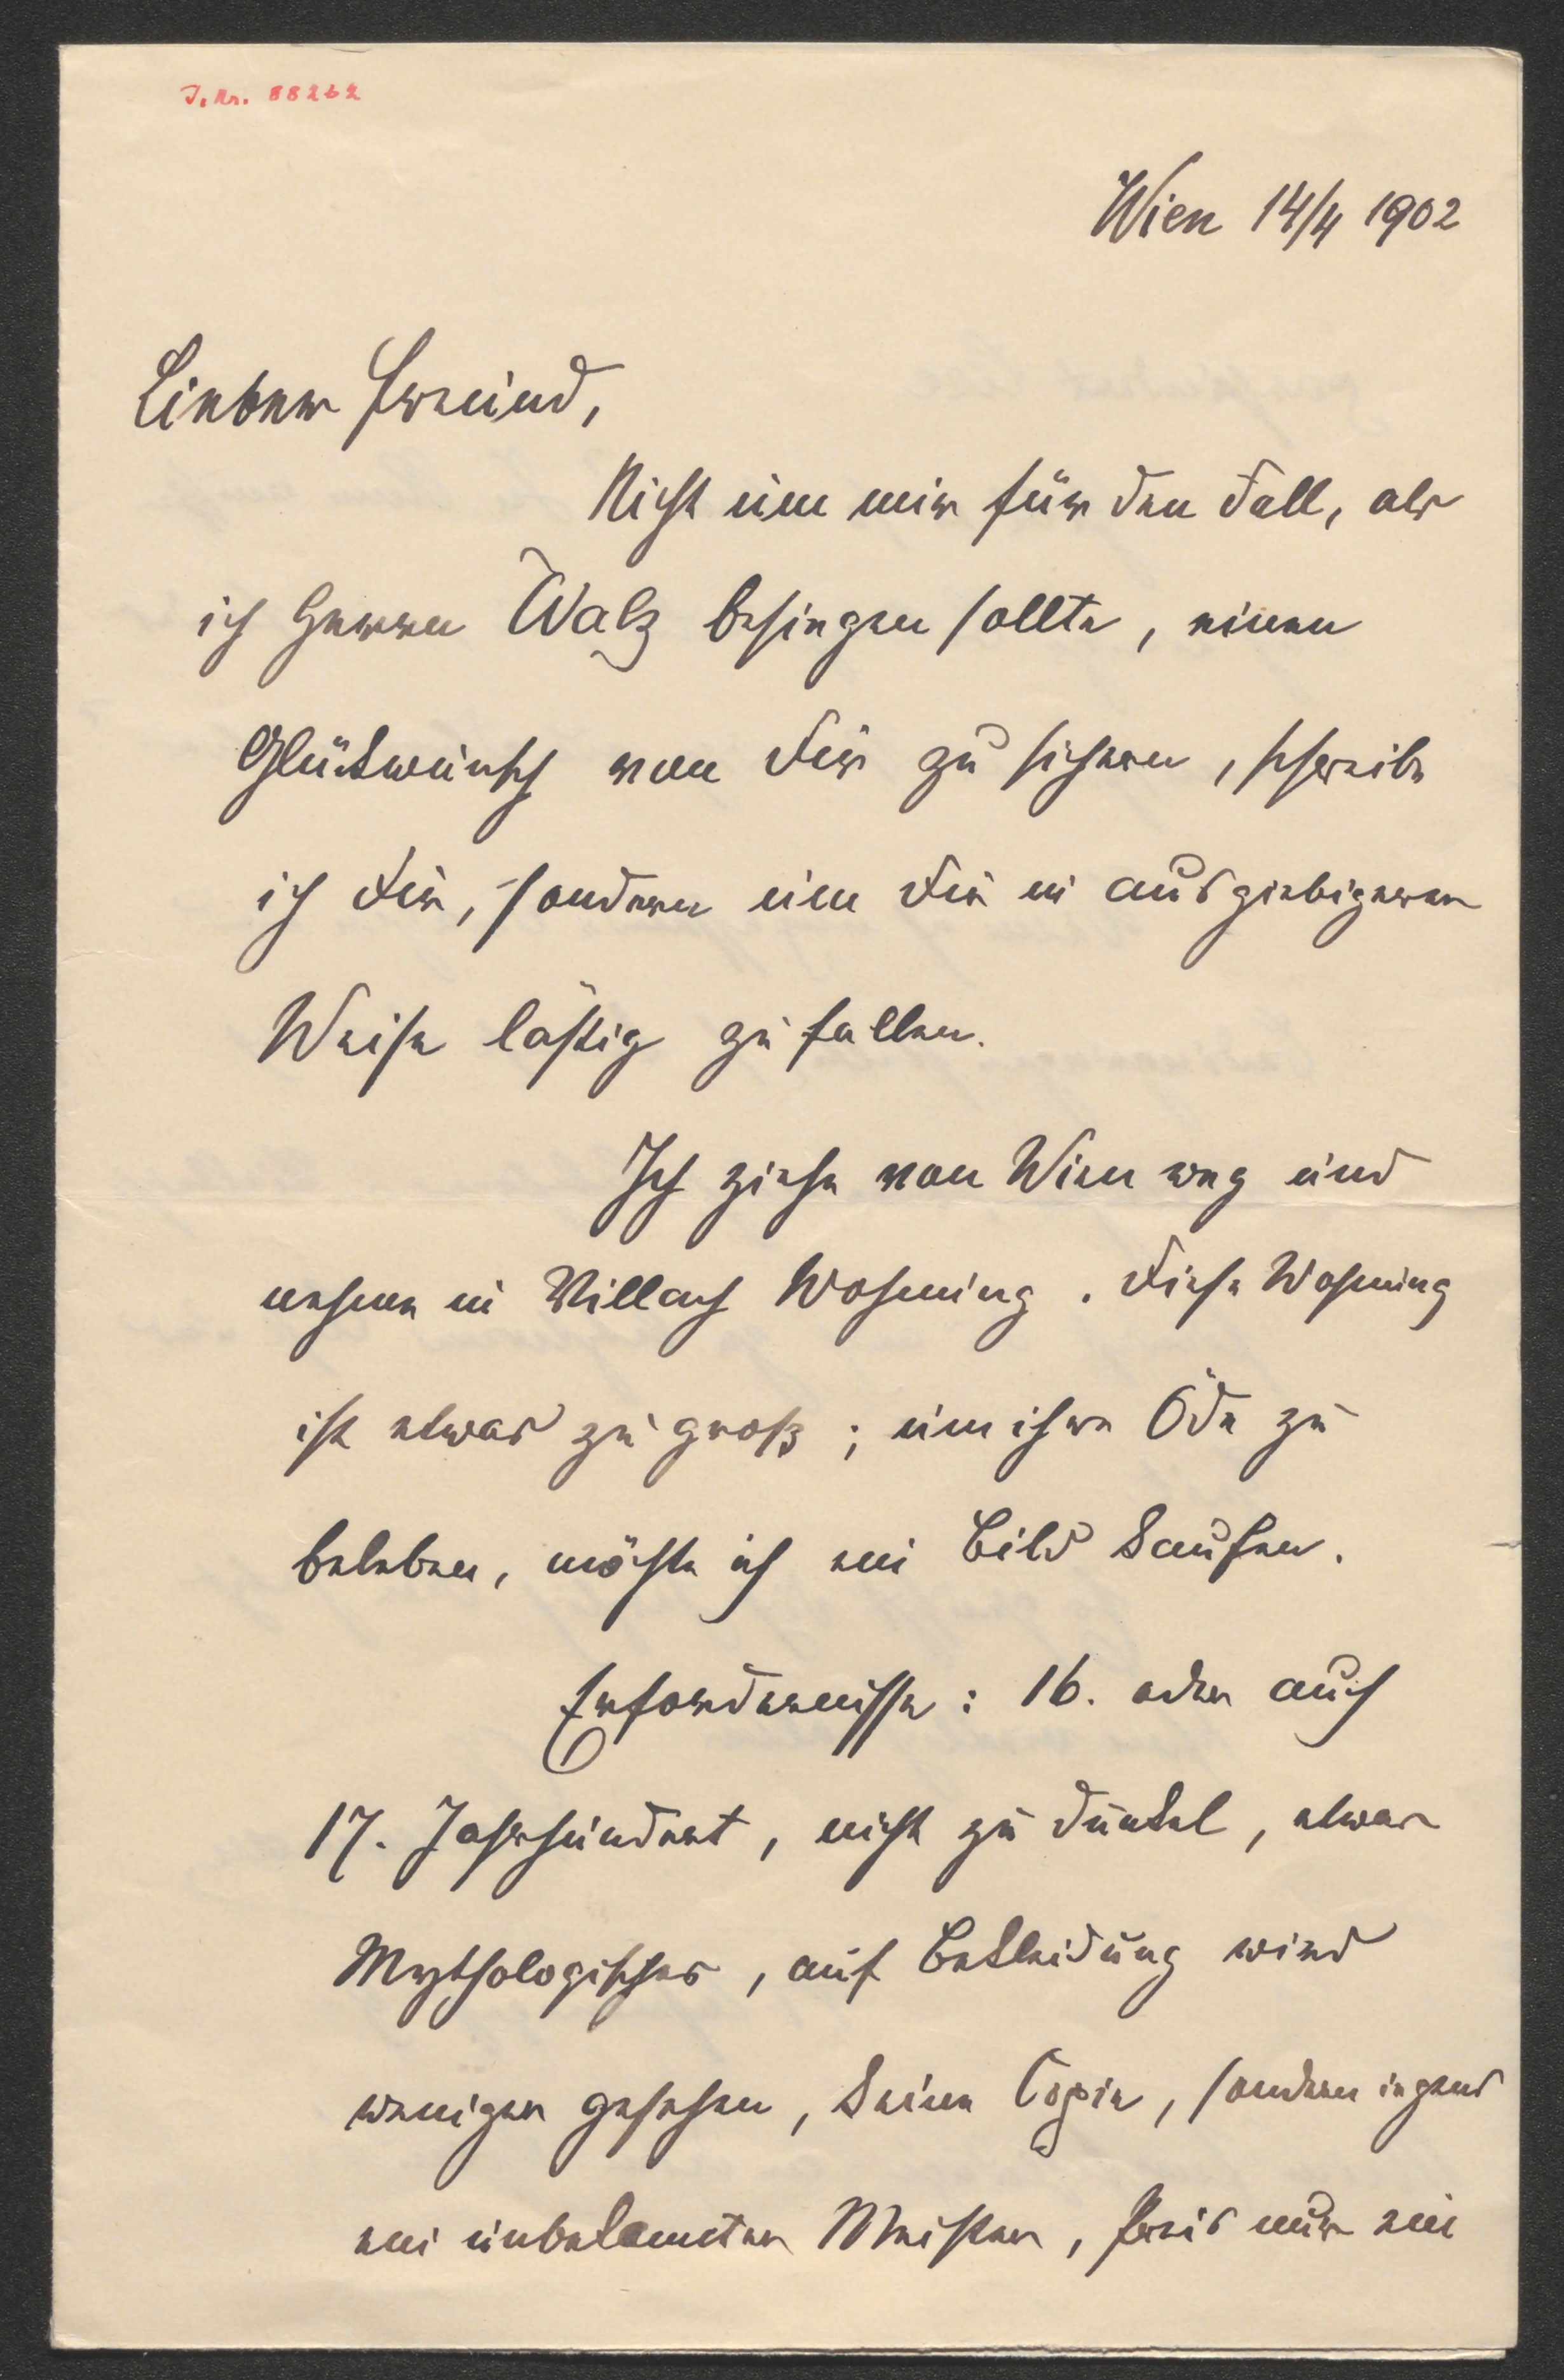 J. Nr. 88262
Wien 14/4 1902
Lieber Freund,
Nicht um mir für den Fall, als
ich Herrn Walz besiegen sollte, einen
Glückwunsch von Dir zu sichern, schreibe
ich Dir, sondern um Dir in ausgiebigerer
Weise lästig zu fallen.
Ich ziehe von Wien weg und
nehme in Villach Wohnung. Diese Wohnung
ist etwas zu groß; um ihre Öde zu
beleben, möchte ich ein Bild kaufen.
Erfordernisse: 16. oder auch
17. Jahrhundert, nicht zu dunkel, etwas
Mythologisches, auf Bekleidung wird
weniger gesehen, keine Copie, sondern irgend
ein unbekannter Meister, Preis nur ein